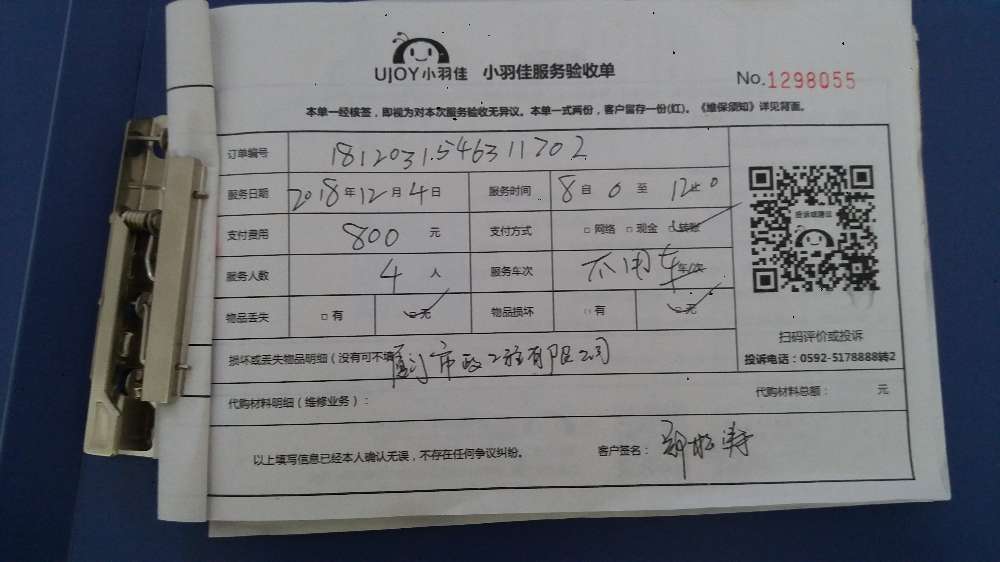 UJOY小羽佳 小羽佳服务验收单
No.1298055
本单一经核签，即视为对本次服务验收无异议。本单一式两份，客户留存一份(红)。《维保须知》详见背面。
订单编号 1812031546311702
服务日期 2018年12月4日 服务时间 8自0至12止0
支付费用 800元 支付方式 □网络 □现金 □转账
服务人数 4人 服务车次 不用车 车/次
物品丢失 □有 □无 物品损坏 □有 □无
投诉或建议
扫码评价或投诉
投诉电话：0592-5178888转2
损坏或丢失物品明细（没有可不填 厦门市政工程有限公司
代购材料明细（维修业务）： 代购材料总额： 元
以上填写信息已经本人确认无误，不存在任何争议纠纷。 客户签名：